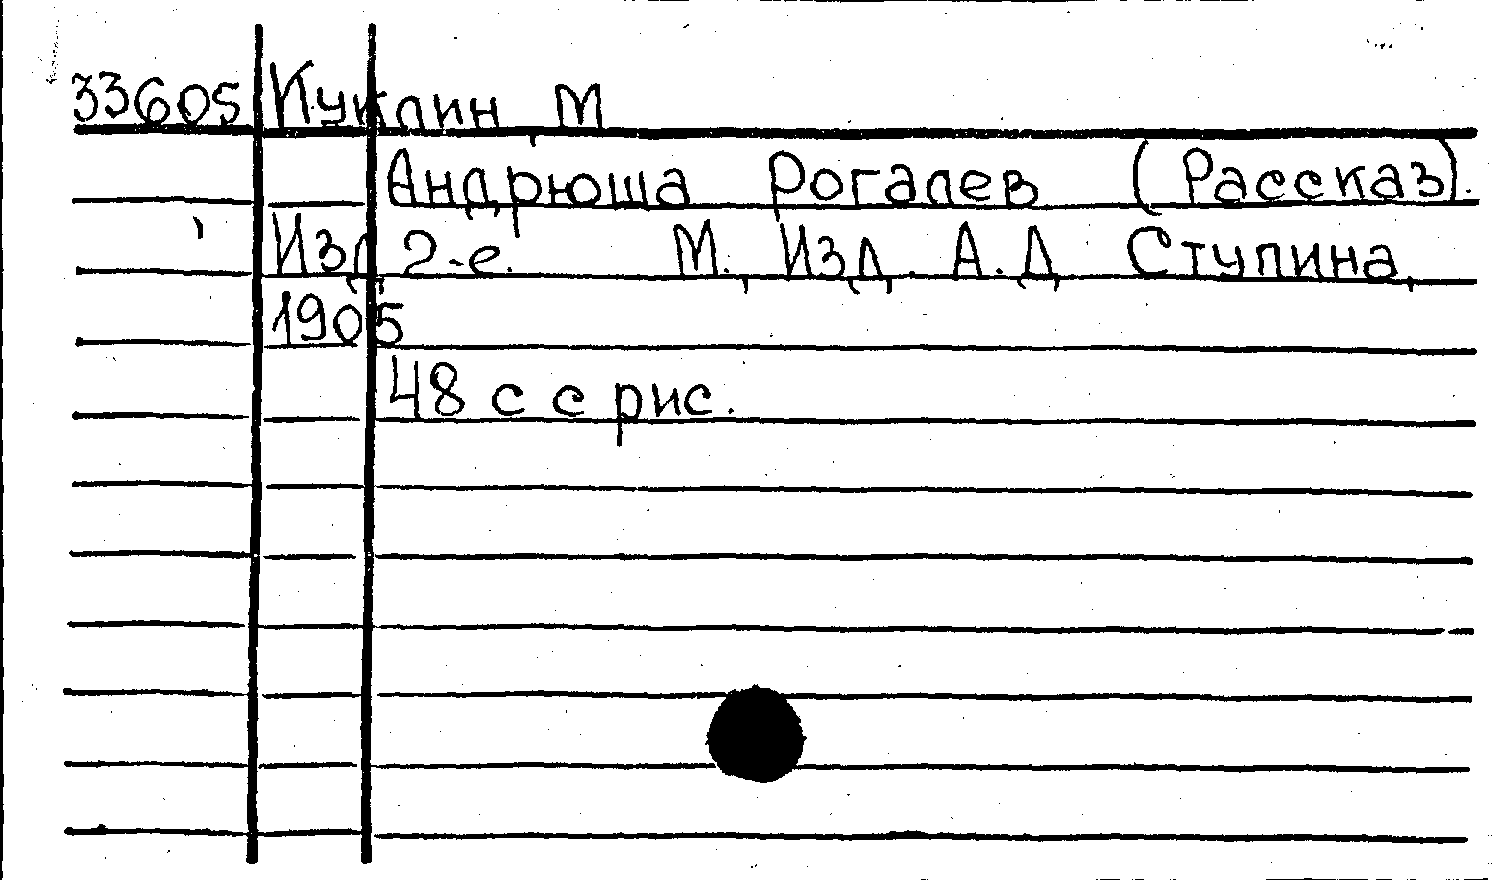 33605 Куклин, М
Андрюша Рогалев (Рассказ).
Изд. 2-е. М., Изд. А.Д. Ступина,
1905
48 с с рис.